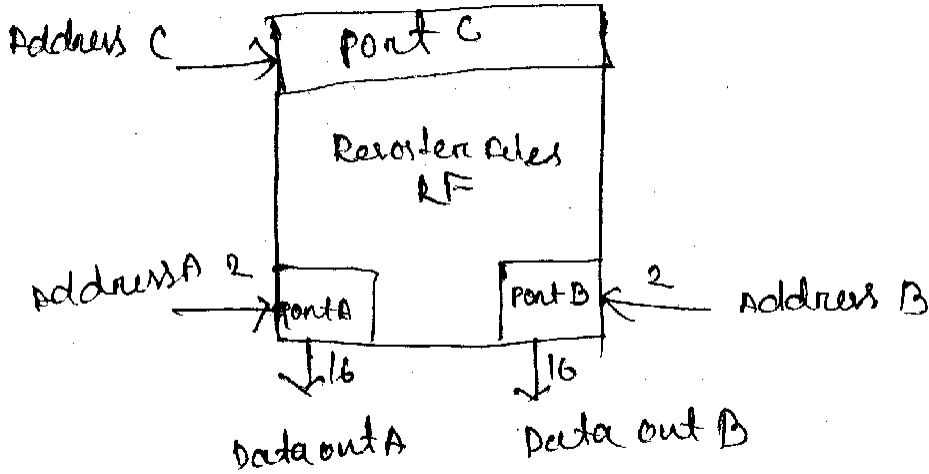 Address C
Port C
Register Files
RF
Address A 2
Port A
Port B
2
Address B
16
16
Data out A
Data out B